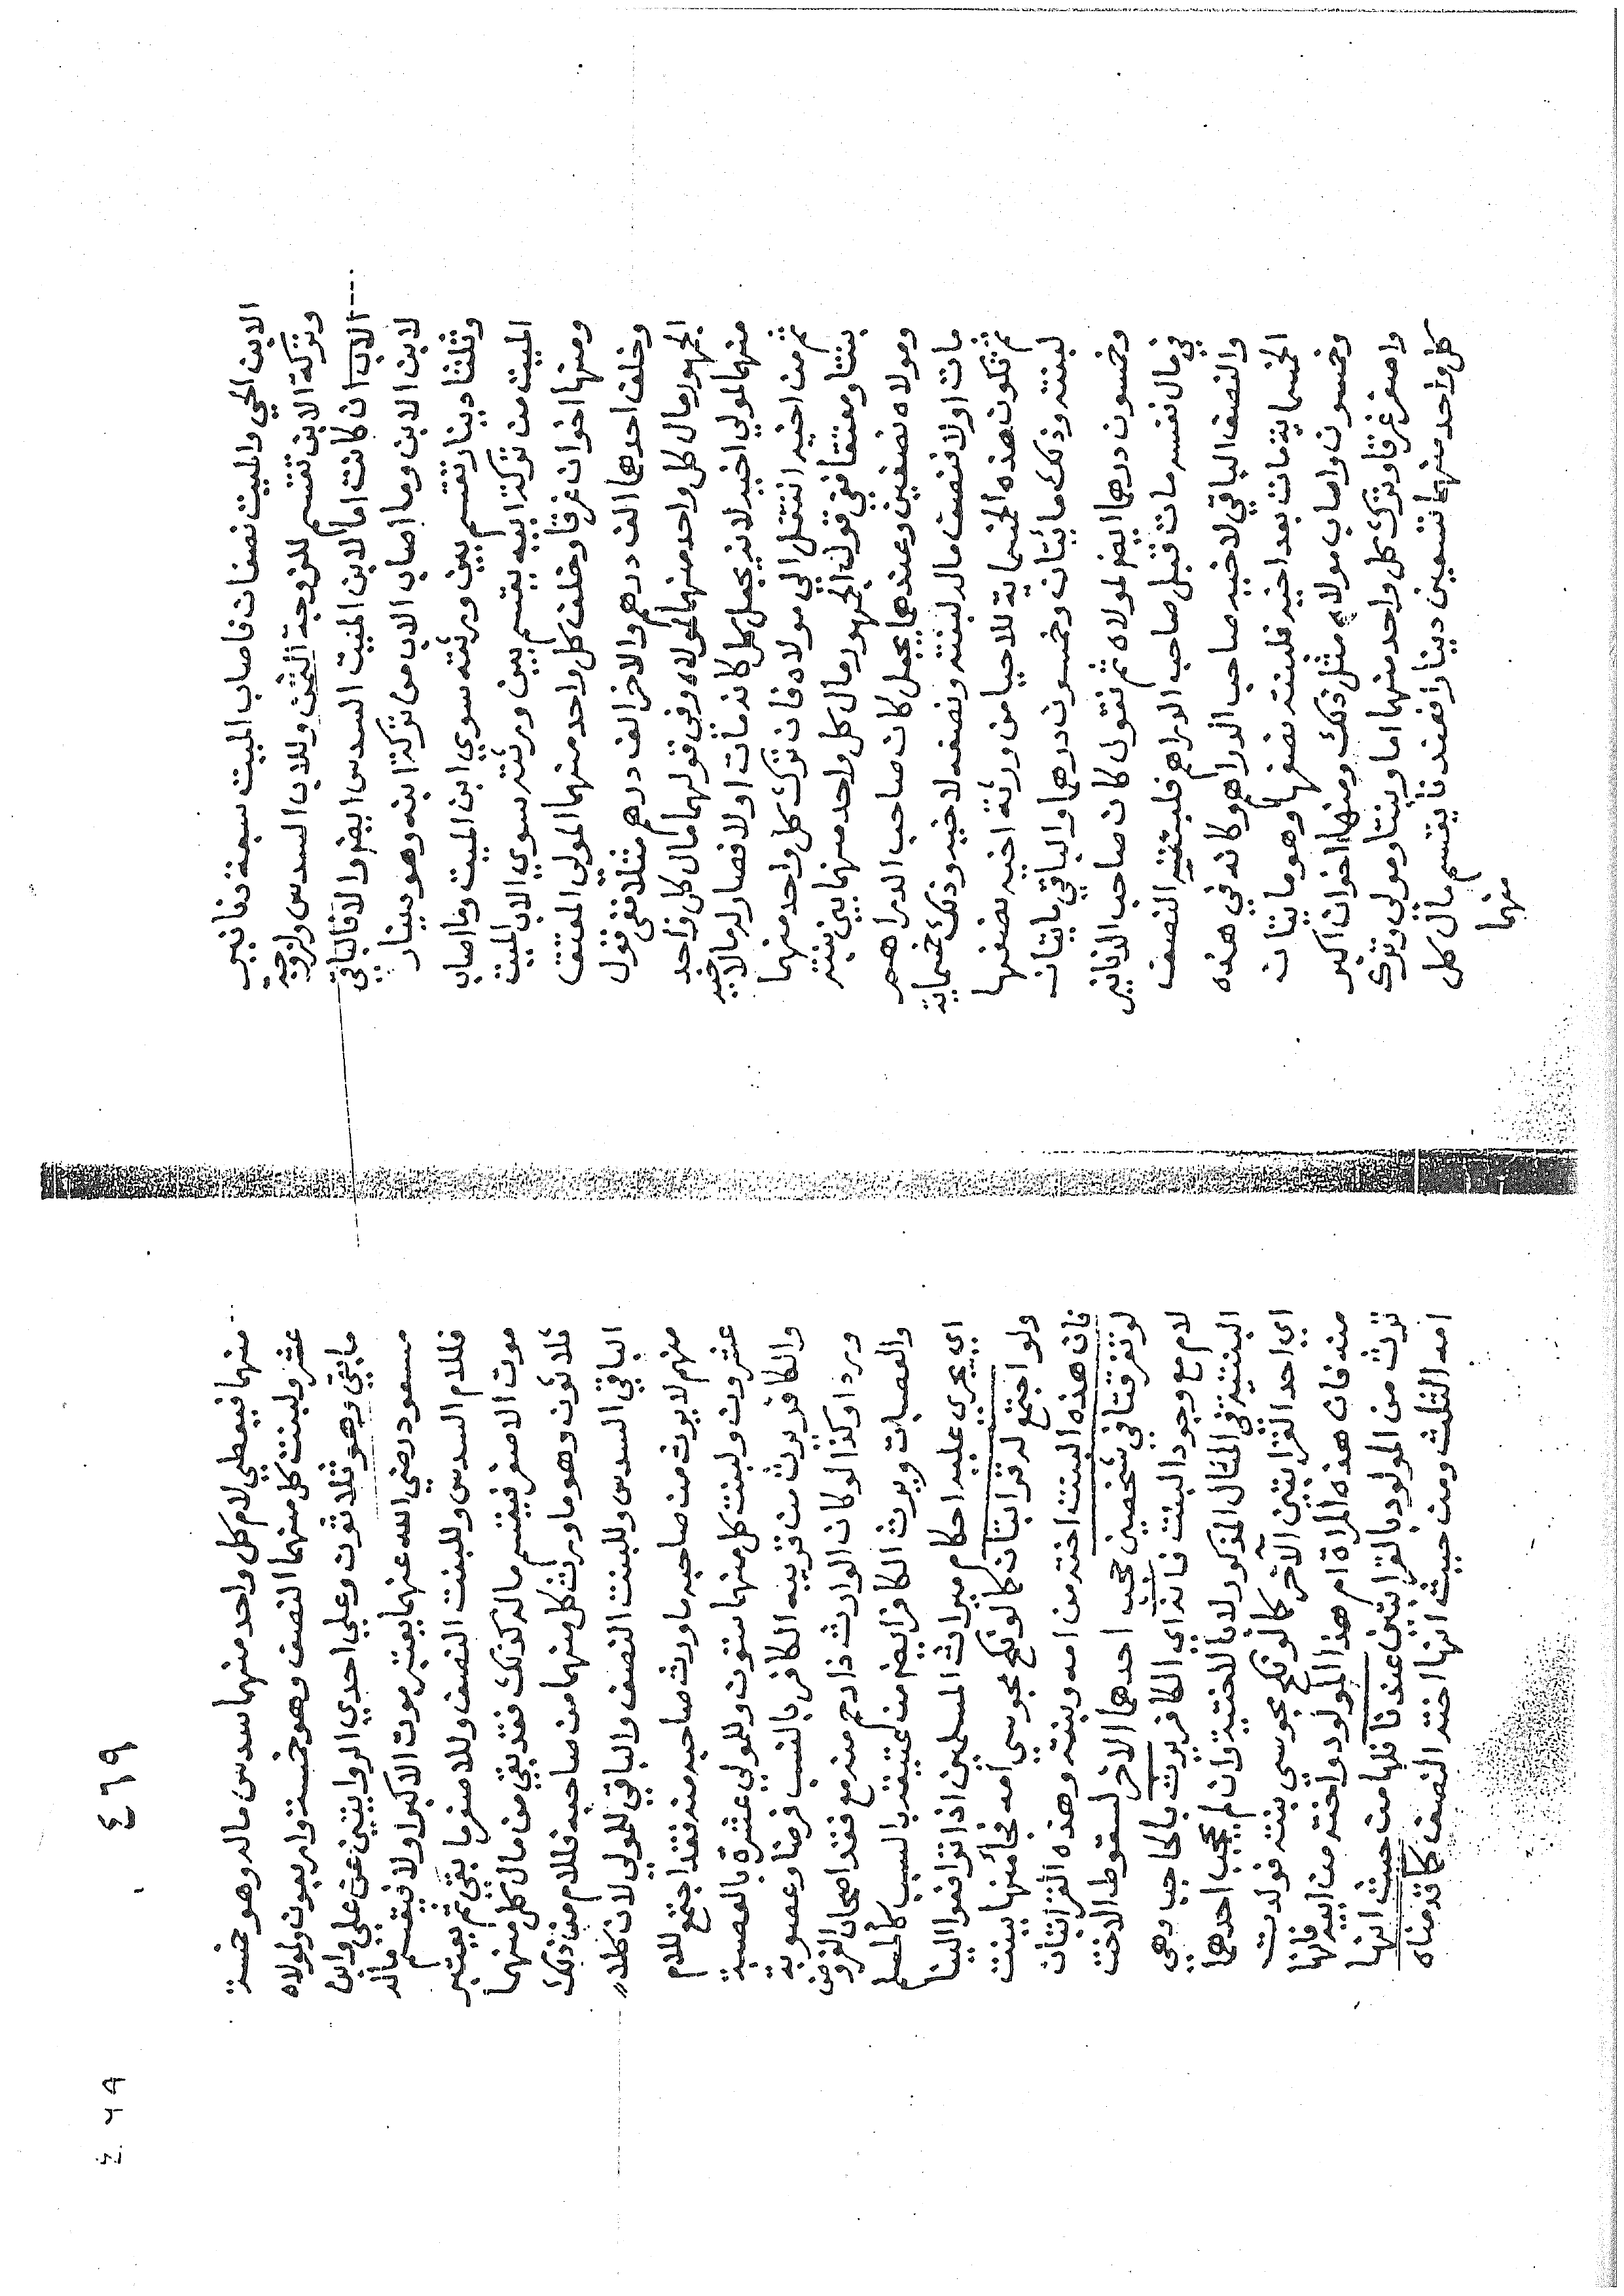 الابن الحي والميت نصفان فاصاب الميت سبعة دنانير
وتركة الابن تقسم للزوجة الثمن وللاب السدس ولزوجة
الاب ان كانت اما لابن الميت السدس ايضر والا فالباقي
لابن الابن وما اصاب الاب من تركة ابنه وهو دينار
وثلثا دينار تقسم بين ورثته سوي ابن الميت وما اصاب
الميت من تركة ابيه يقسم بين ورثته سوي الاب الميت
ومنها اخوان غرقا وخلف كل واحد منهما المولي المعتق
وخلف احدهما الف درهم والاخر الف درهم مثلا ففي قول
الجمهور مال كل واحد منهما لمولاه وفي قولهما مال كل واحد
منهما لمولي اخيه لانه يجعل كل كانه مات اولا فصار له مال اخيه
ثم من اخيه انتقل الي مولاه فان ترك كل واحد منهما
بنتا ومعتقا ففي قول الجمهور مال كل واحد منهما بين بنته
ومولاه نصفين وعندهما يجعل كان صاحب الدراهم
مات اولا فنصف ماله لبنته ونصفه لاخيه وذلك خمسماية
ثم تكون هذه الخمسماية للاحيا من ورثة اخيه نصفها
لبنته وذلك مائتان وخمسون درهما والباقي مايتان
وخمسون درهما ايضر لمولاه ثم نقول كان صاحب الدنانير
في مال نفسه مات قبل صاحب الدراهم فلبنته النصف
والنصف الباقي لاخيه صاحب الدراهم وكانه في هذه
الخمسماية مات بعد اخيه فلبنته نصفها وهو مايتان
وخمسون واصاب مولاه مثل ذلك ومنها اخوان اكبر
واصغر غرقا وترك كل واحد منهما اما وبنتا ومولي وترك
كل واحد منهما تسعين دينارا فعندنا يقسم مال كل
منهما
٤٦٩
منهما فيعطي لام كل واحد منهما سدس ماله وهو خمسة
عشر ولبنت كل منهما النصف وهو خمسة واربعون ولمولاه
مابقي وهو ثلاثون وعلي احدي الروايتين عن علي وابن
مسعود رضي الله عنهما يعتبر موت الاكبر اولا فيقسم ماله
فللام السدس وللبنت النصف وللاصغر ما بقي ثم يعتبر
موت الاصغر فيقسم ماله كذلك فقد بقي من مال كل منهما
ثلاثون وهو ما ورث كل منهما من صاحبه فللام من ذلك
السدس وللبنت النصف والباقي للمولي لان كلا
منهم لا يرث من صاحبه ماورث صاحبه منه فقد اجتمع للام
عشرون ولبنت كل منهما ستون وللمولي عشرة بالعصبة
والكافر يرث من قريبه الكافر بالنسب فرضا وعصوبة
وردا وكذا لو كان الوارث ذا رحم منه مع فقد اصحاب الفروض
والعصبات ويرث الكافر ايضر من عتيقه بالسبب كالمسلم
اي يجري عليه احكام ميراث المسلمين اذا ترافعوا الينا
ولو اجتمع له قرابتان كما لو نكح مجوسي امه فجاء منها ببنت
فان هذه البنت اخته من امه وبنته وهذه القرابتان
لو تفرقتا في شخصين حجب احدهما الاخر لسقوط الاخت
لام مع وجود البنت فانه اي الكافر يرث بالحاجب وهي
البنتية في المثال المذكور لا بالاختية وان لم يحجب احدهما
اي احد القرابتين الآخر كما لو نكح مجوسي بنته فولدت
منه فان هذه المراة ام هذا المولود واخته من ابيه فانها
ترث من المولود بالقرابتين عندنا فلها من حيث انها
امه الثلث ومن حيث انها اخته النصف كما قدمناه